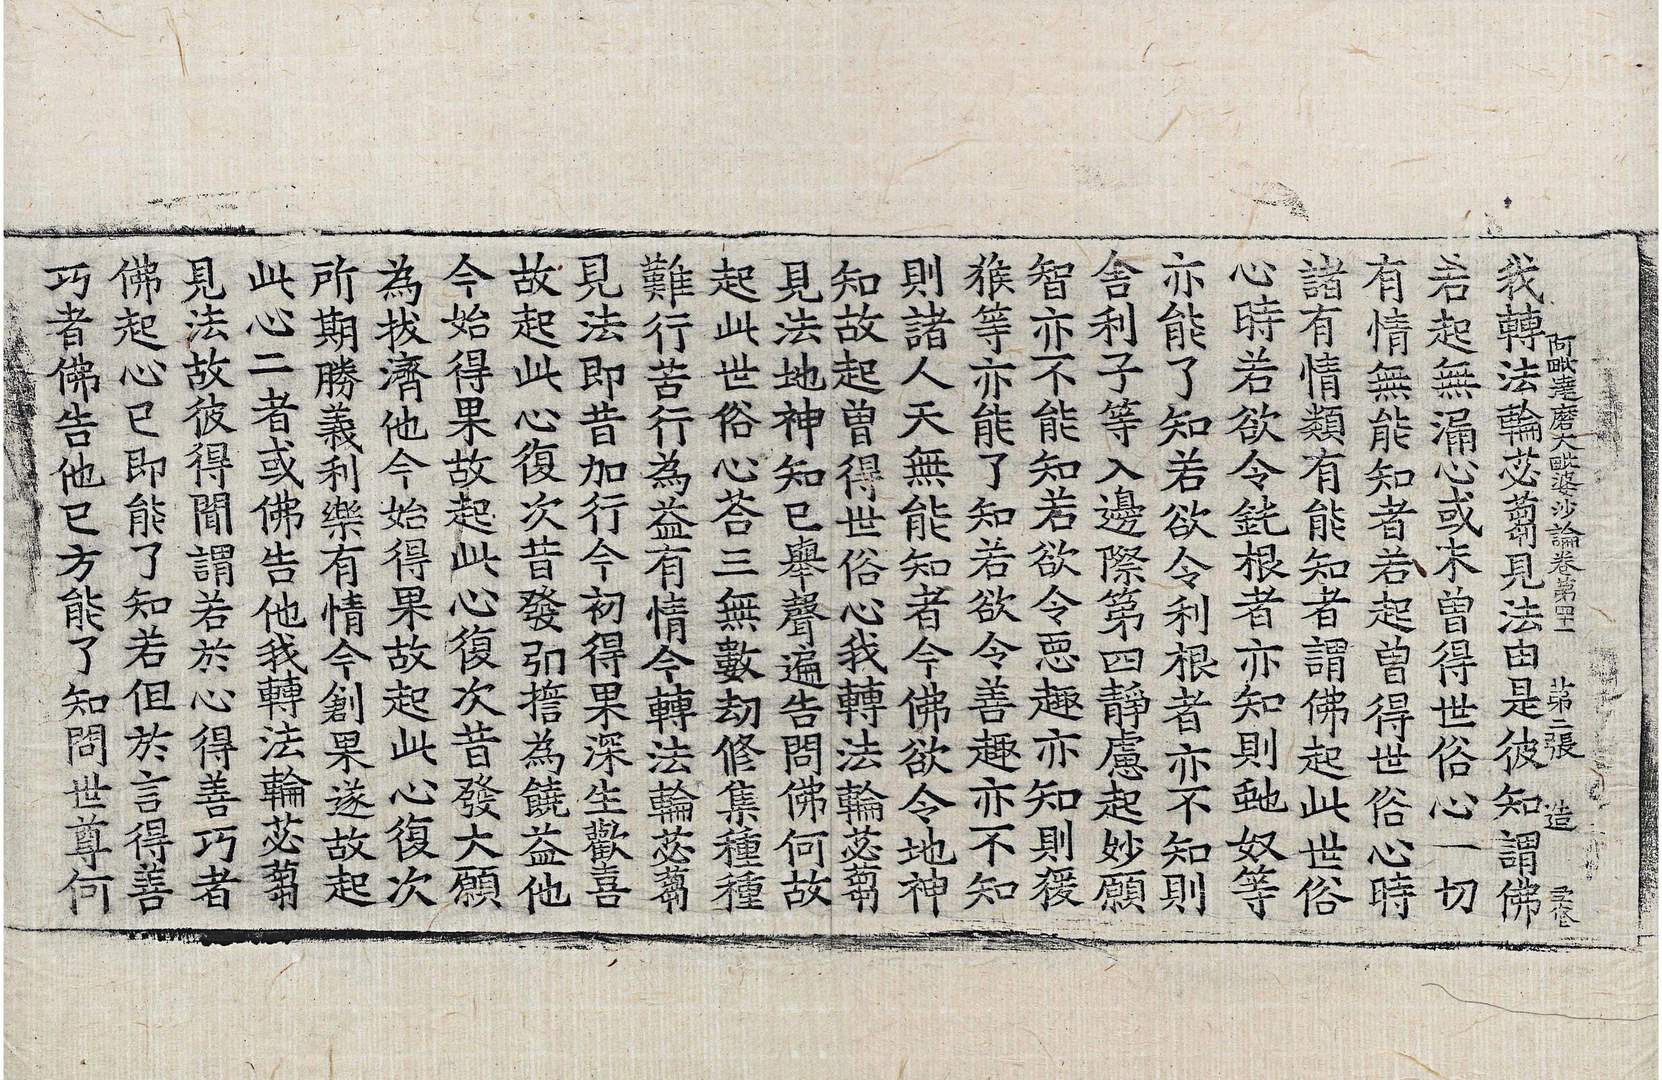 阿毗達磨大毗婆沙論卷第四十一　第二張　造
我轉法輪苾蒭見法由是彼知謂佛
若起無漏心或未曾得世俗心一切
有情無能知者若起曾得世俗心時
諸有情類有能知者謂佛起此世俗
心時若欲令鈍根者亦知則虵奴等
亦能了知若欲令利根者亦不知則
舍利子等入邊際第四靜慮起妙願
智亦不能知若欲令惡趣亦知則猨
猴等亦能了知若欲令善趣亦不知
則諸人天無能知者今佛欲令地神
知故起曾得世俗心我轉法輪苾蒭
見法地神知已舉聲遍告問佛何故
起此世俗心荅三無數劫修集種種
難行苦行為益有情今轉法輪苾蒭
見法即昔加行今初得果深生歡喜
故起此心復次昔發引擔為饒益他
今始得果故起此心復次昔發大願
為拔濟他今始得果故起此心復次
所期勝義利樂有情今創果遂故起
此心二者或佛告他我轉法輪苾蒭
見法故彼得聞謂若於心得善巧者
佛起心已即能了知若但於言得善
巧者佛告他已方能了知問世尊何